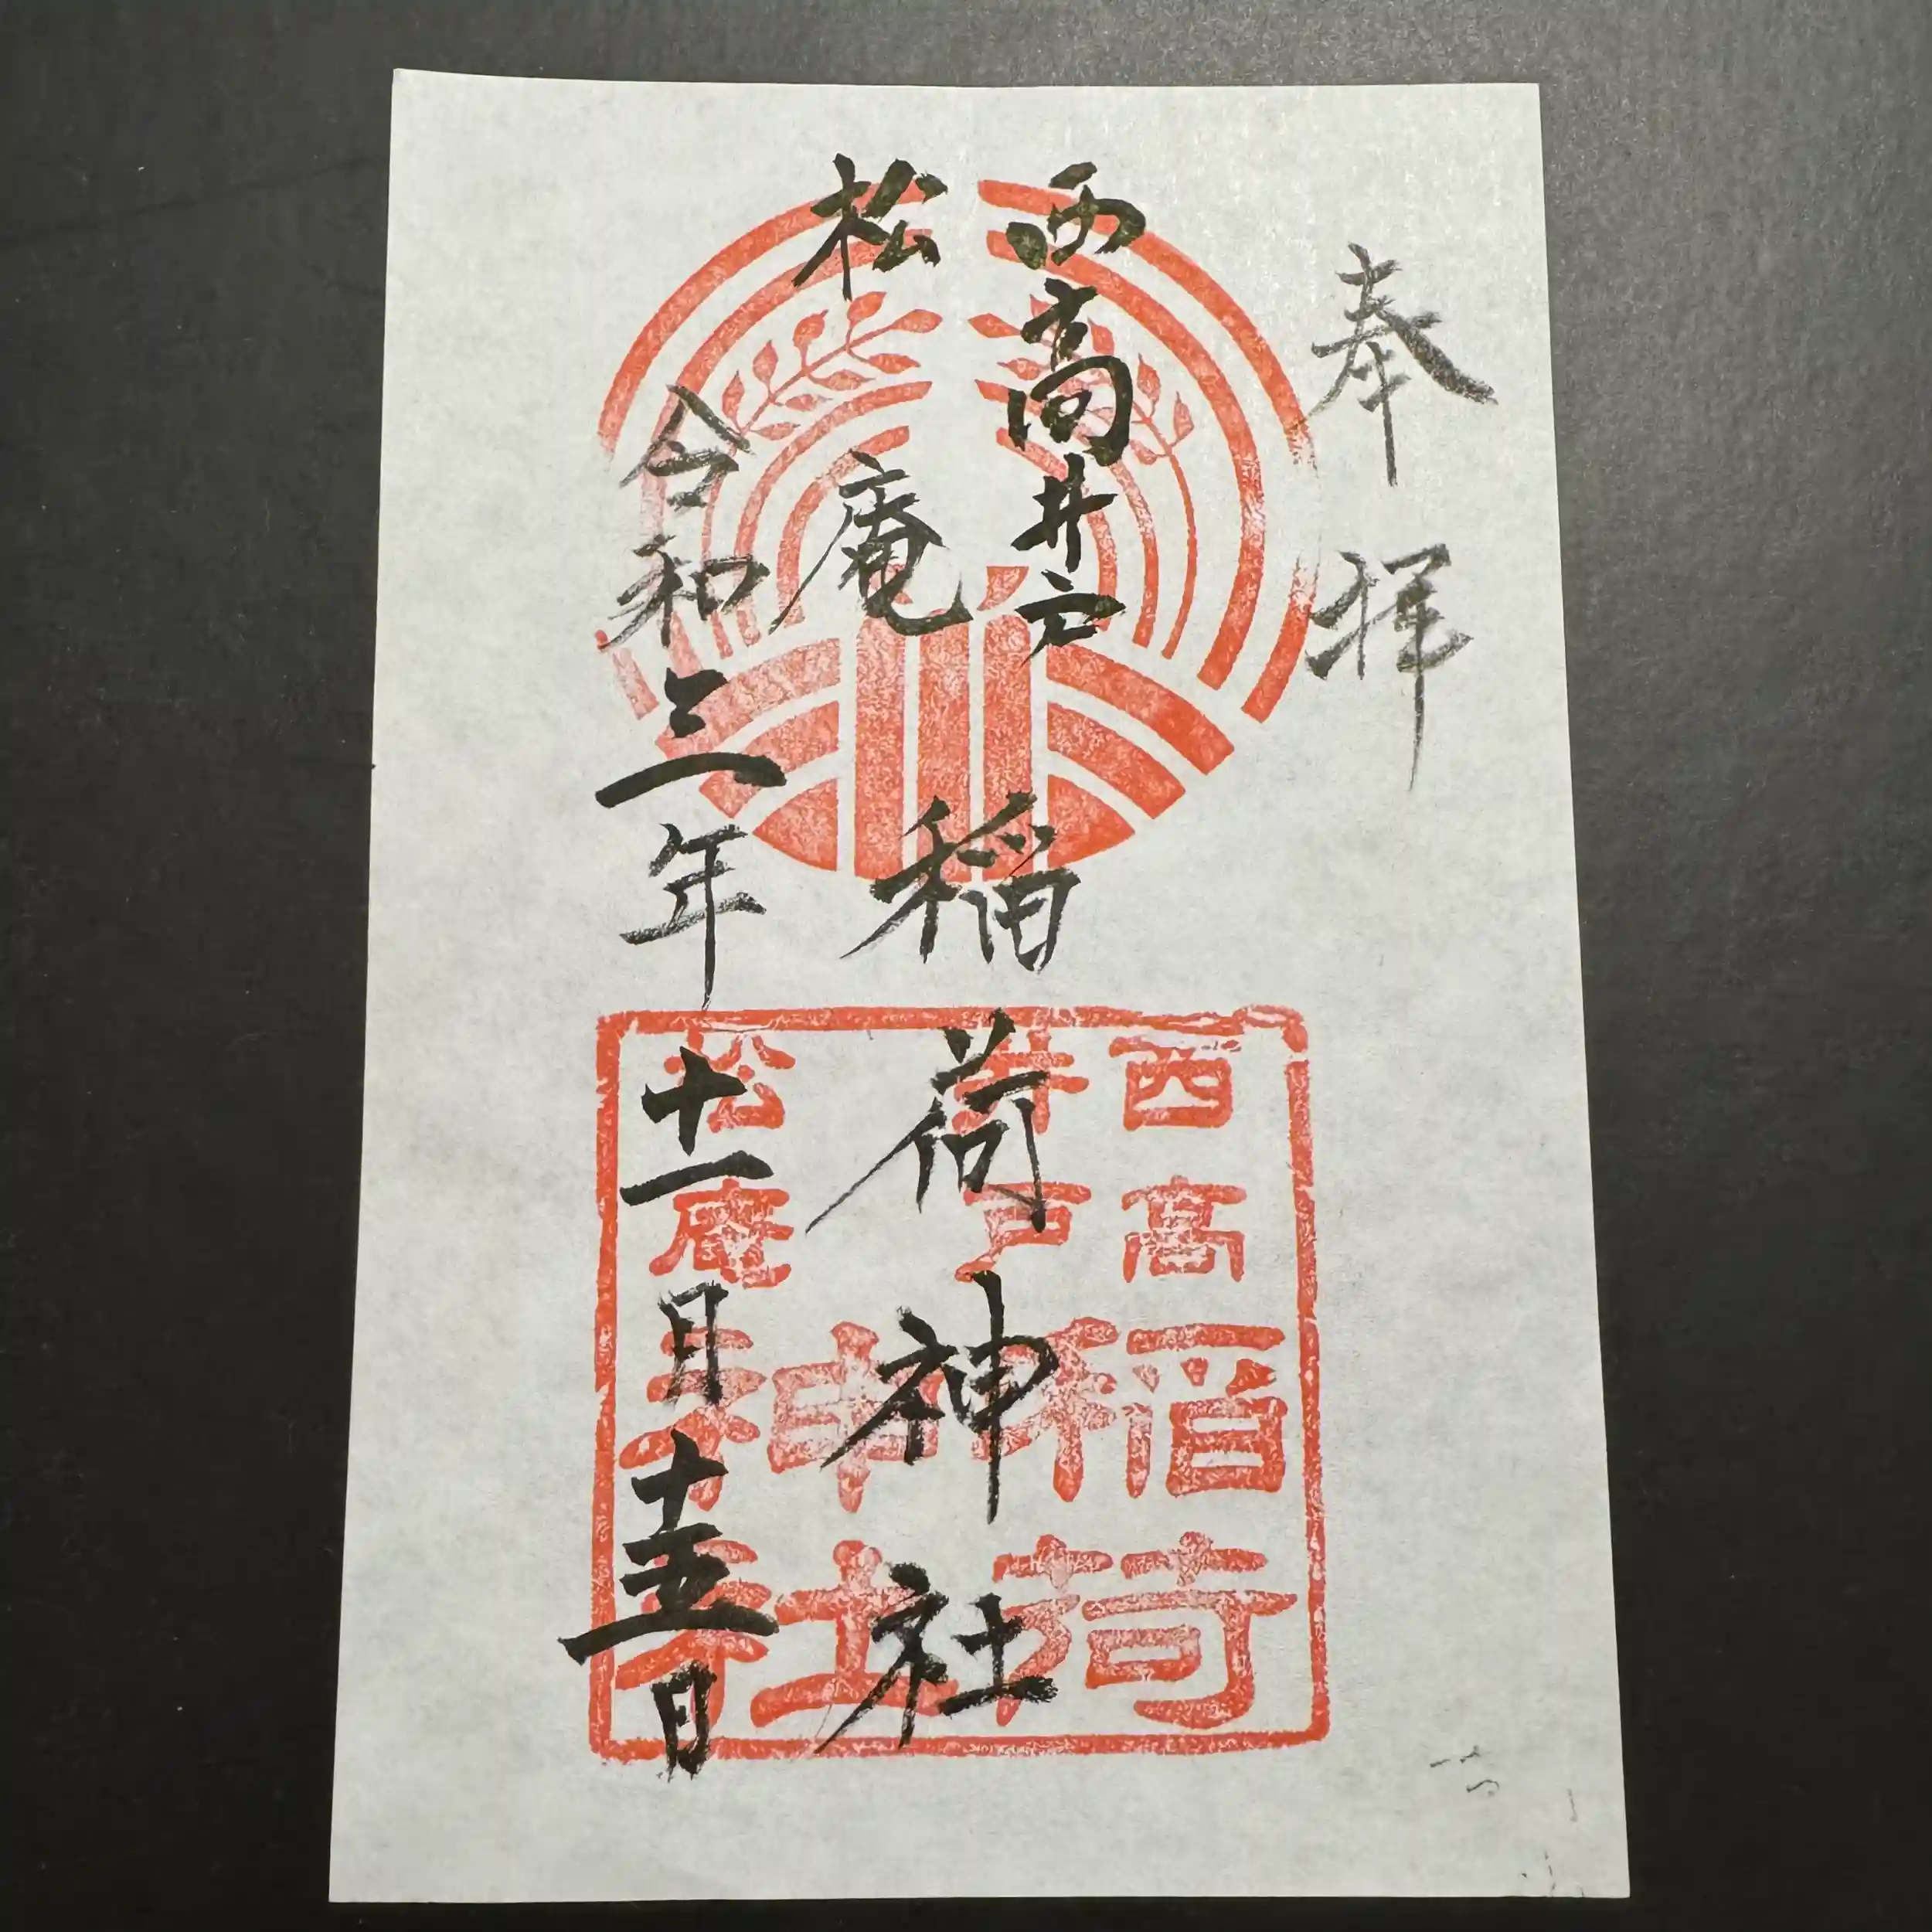 奉拝
西高井戸
松庵
稲荷神社
令和三年十一月十五日
西高
井戸
松庵
稲荷
神社